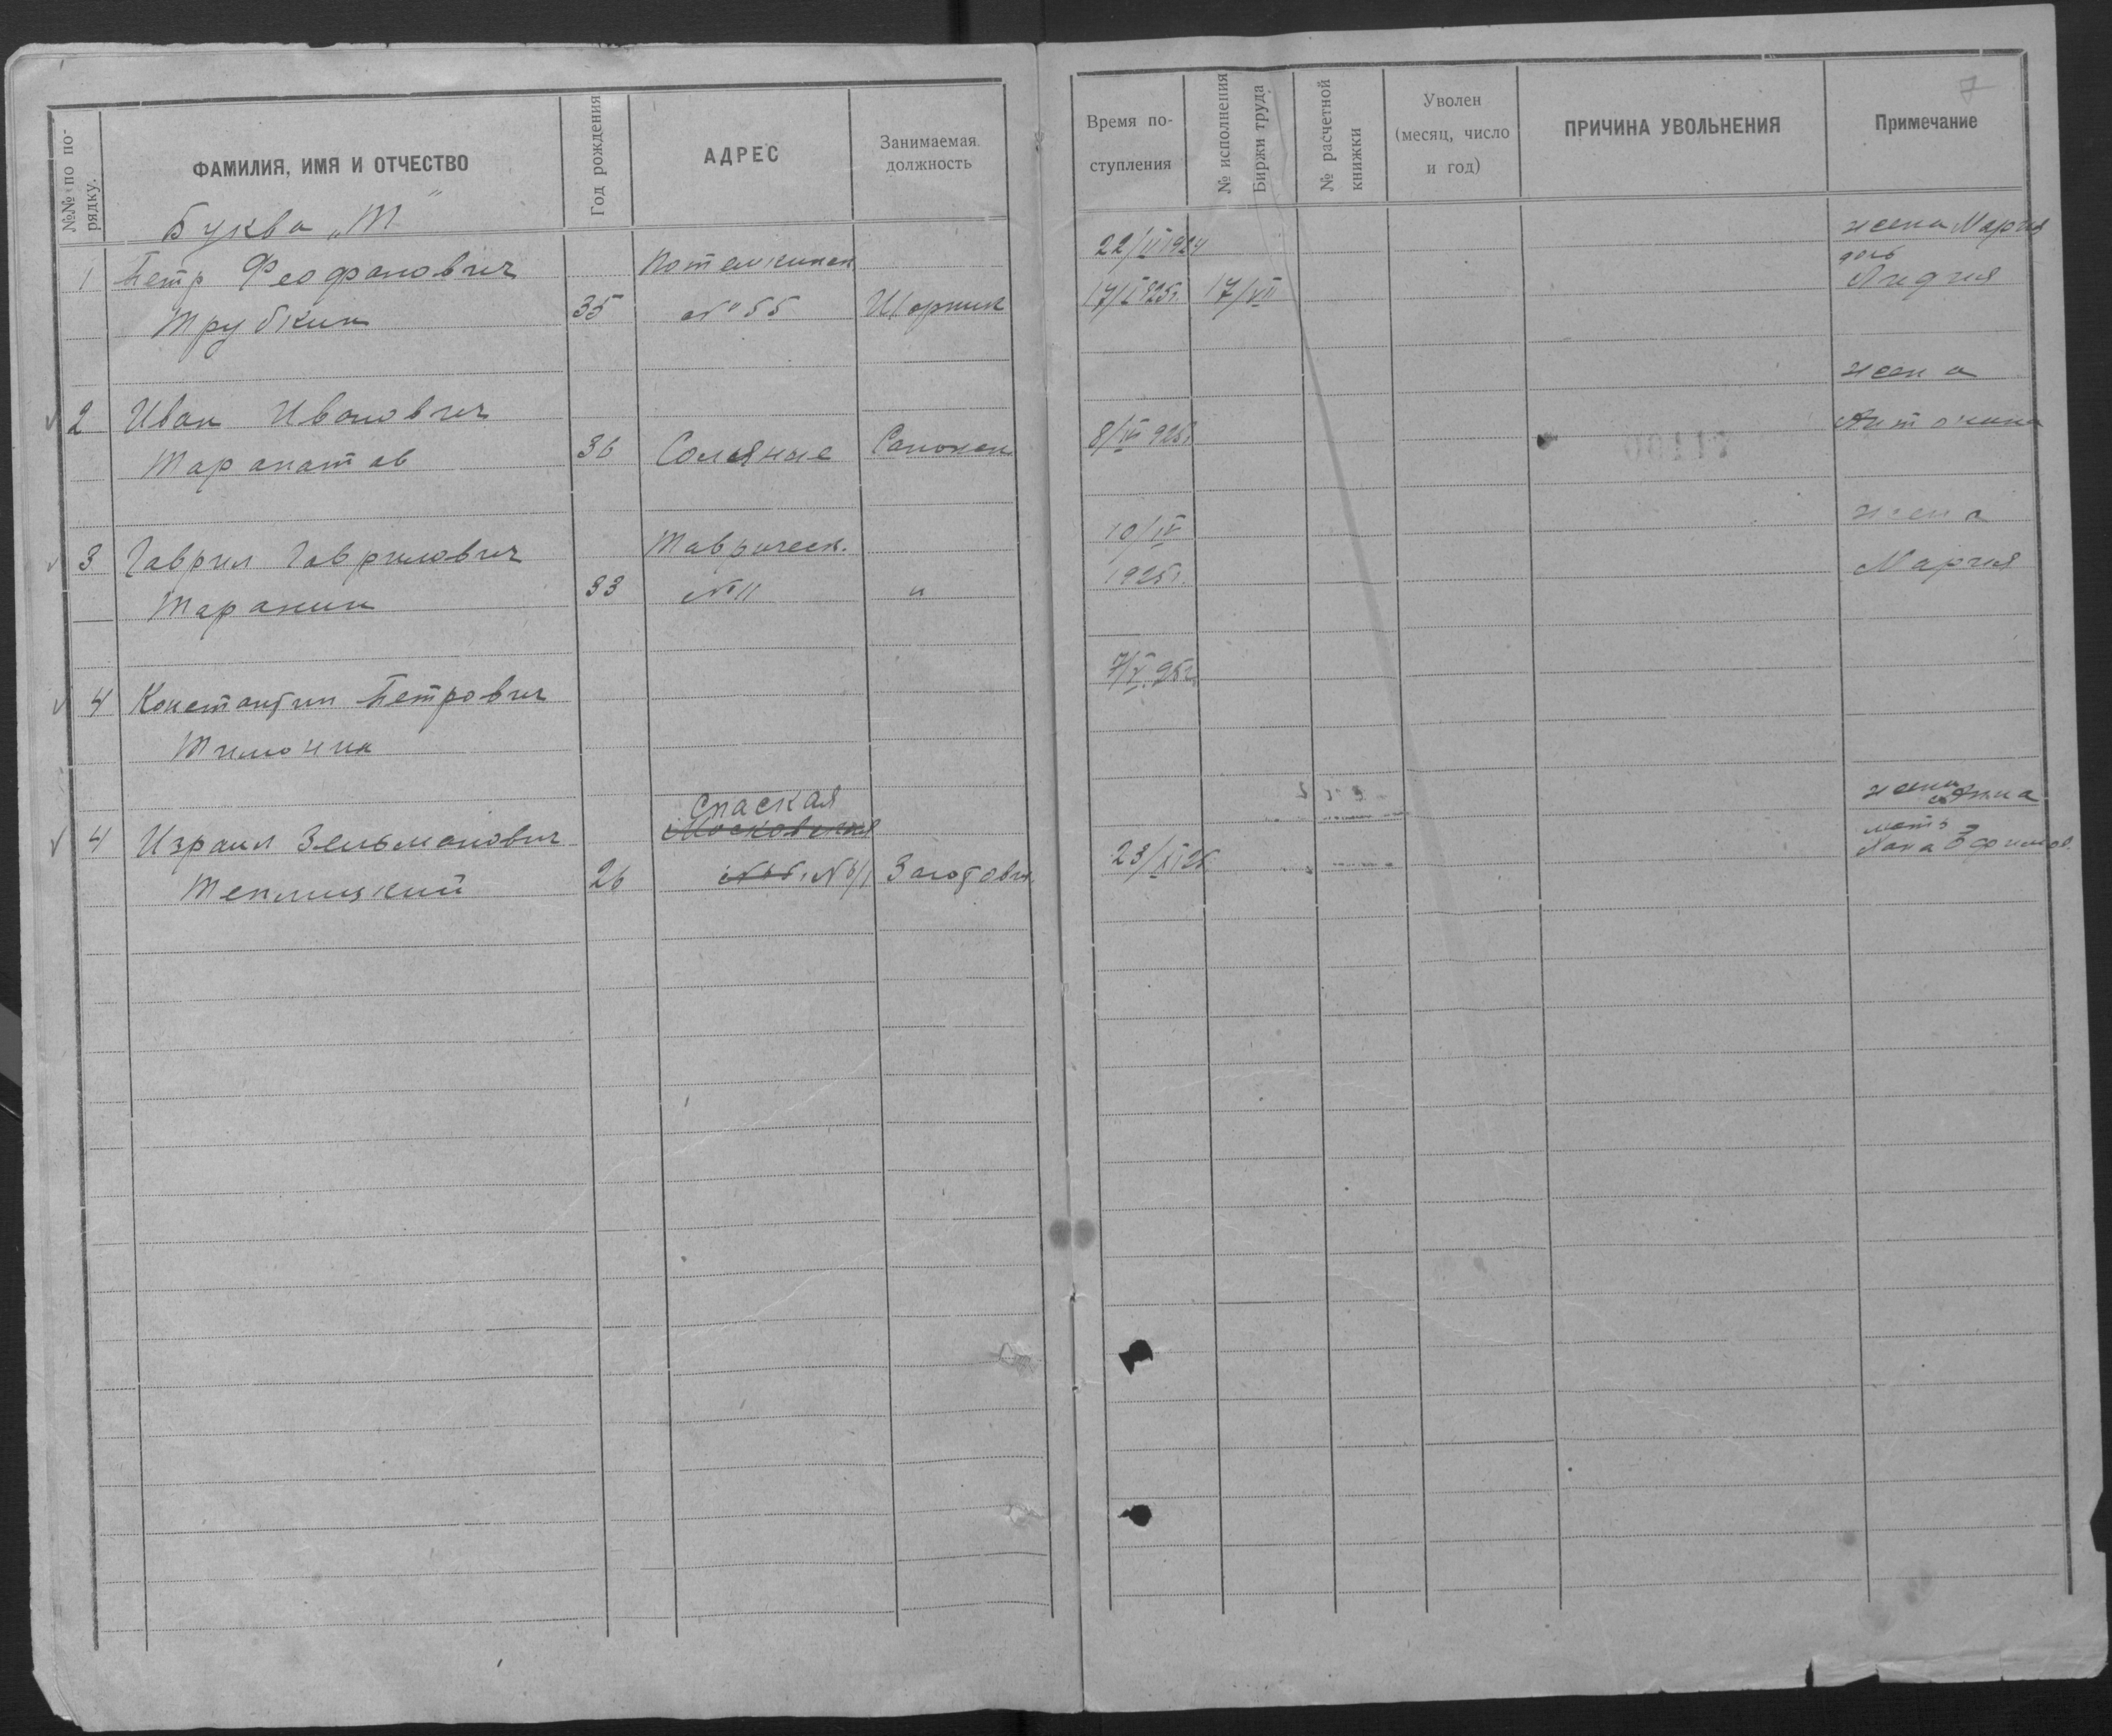 №№ по по-
рядку.
ФАМИЛИЯ, ИМЯ И ОТЧЕСТВО
Год рождения
АДРЕС
Занимаемая
должность
Буква „Т"
1 Петр Феофанович Потемкинск
Трубкин 35 № 55 Шорник
2 Иван Иванович
36 Соляные Сапожн
3 Гаврил Гаврилович Таврическ.
Таранин 33 № 11 "
4 Константин Петрович
Тимонин
Спаская
4 Израил Зельманович Московская
Теплицкий 26 Заготовщ.
7
Время по-
ступления
№ исполнения
Биржи труда
№ расчетной
книжки
Уволен
(месяц, число
и год)
ПРИЧИНА УВОЛЬНЕНИЯ
Примечание
22/II 1924 жена Мария
дочь
17/I 925г. 17/VII Лидия
жена
8/IV 925г. Антонина
10/IV жена
1925г. Мария
7/V. 25г.
жена Анна
мать
23/XI 25